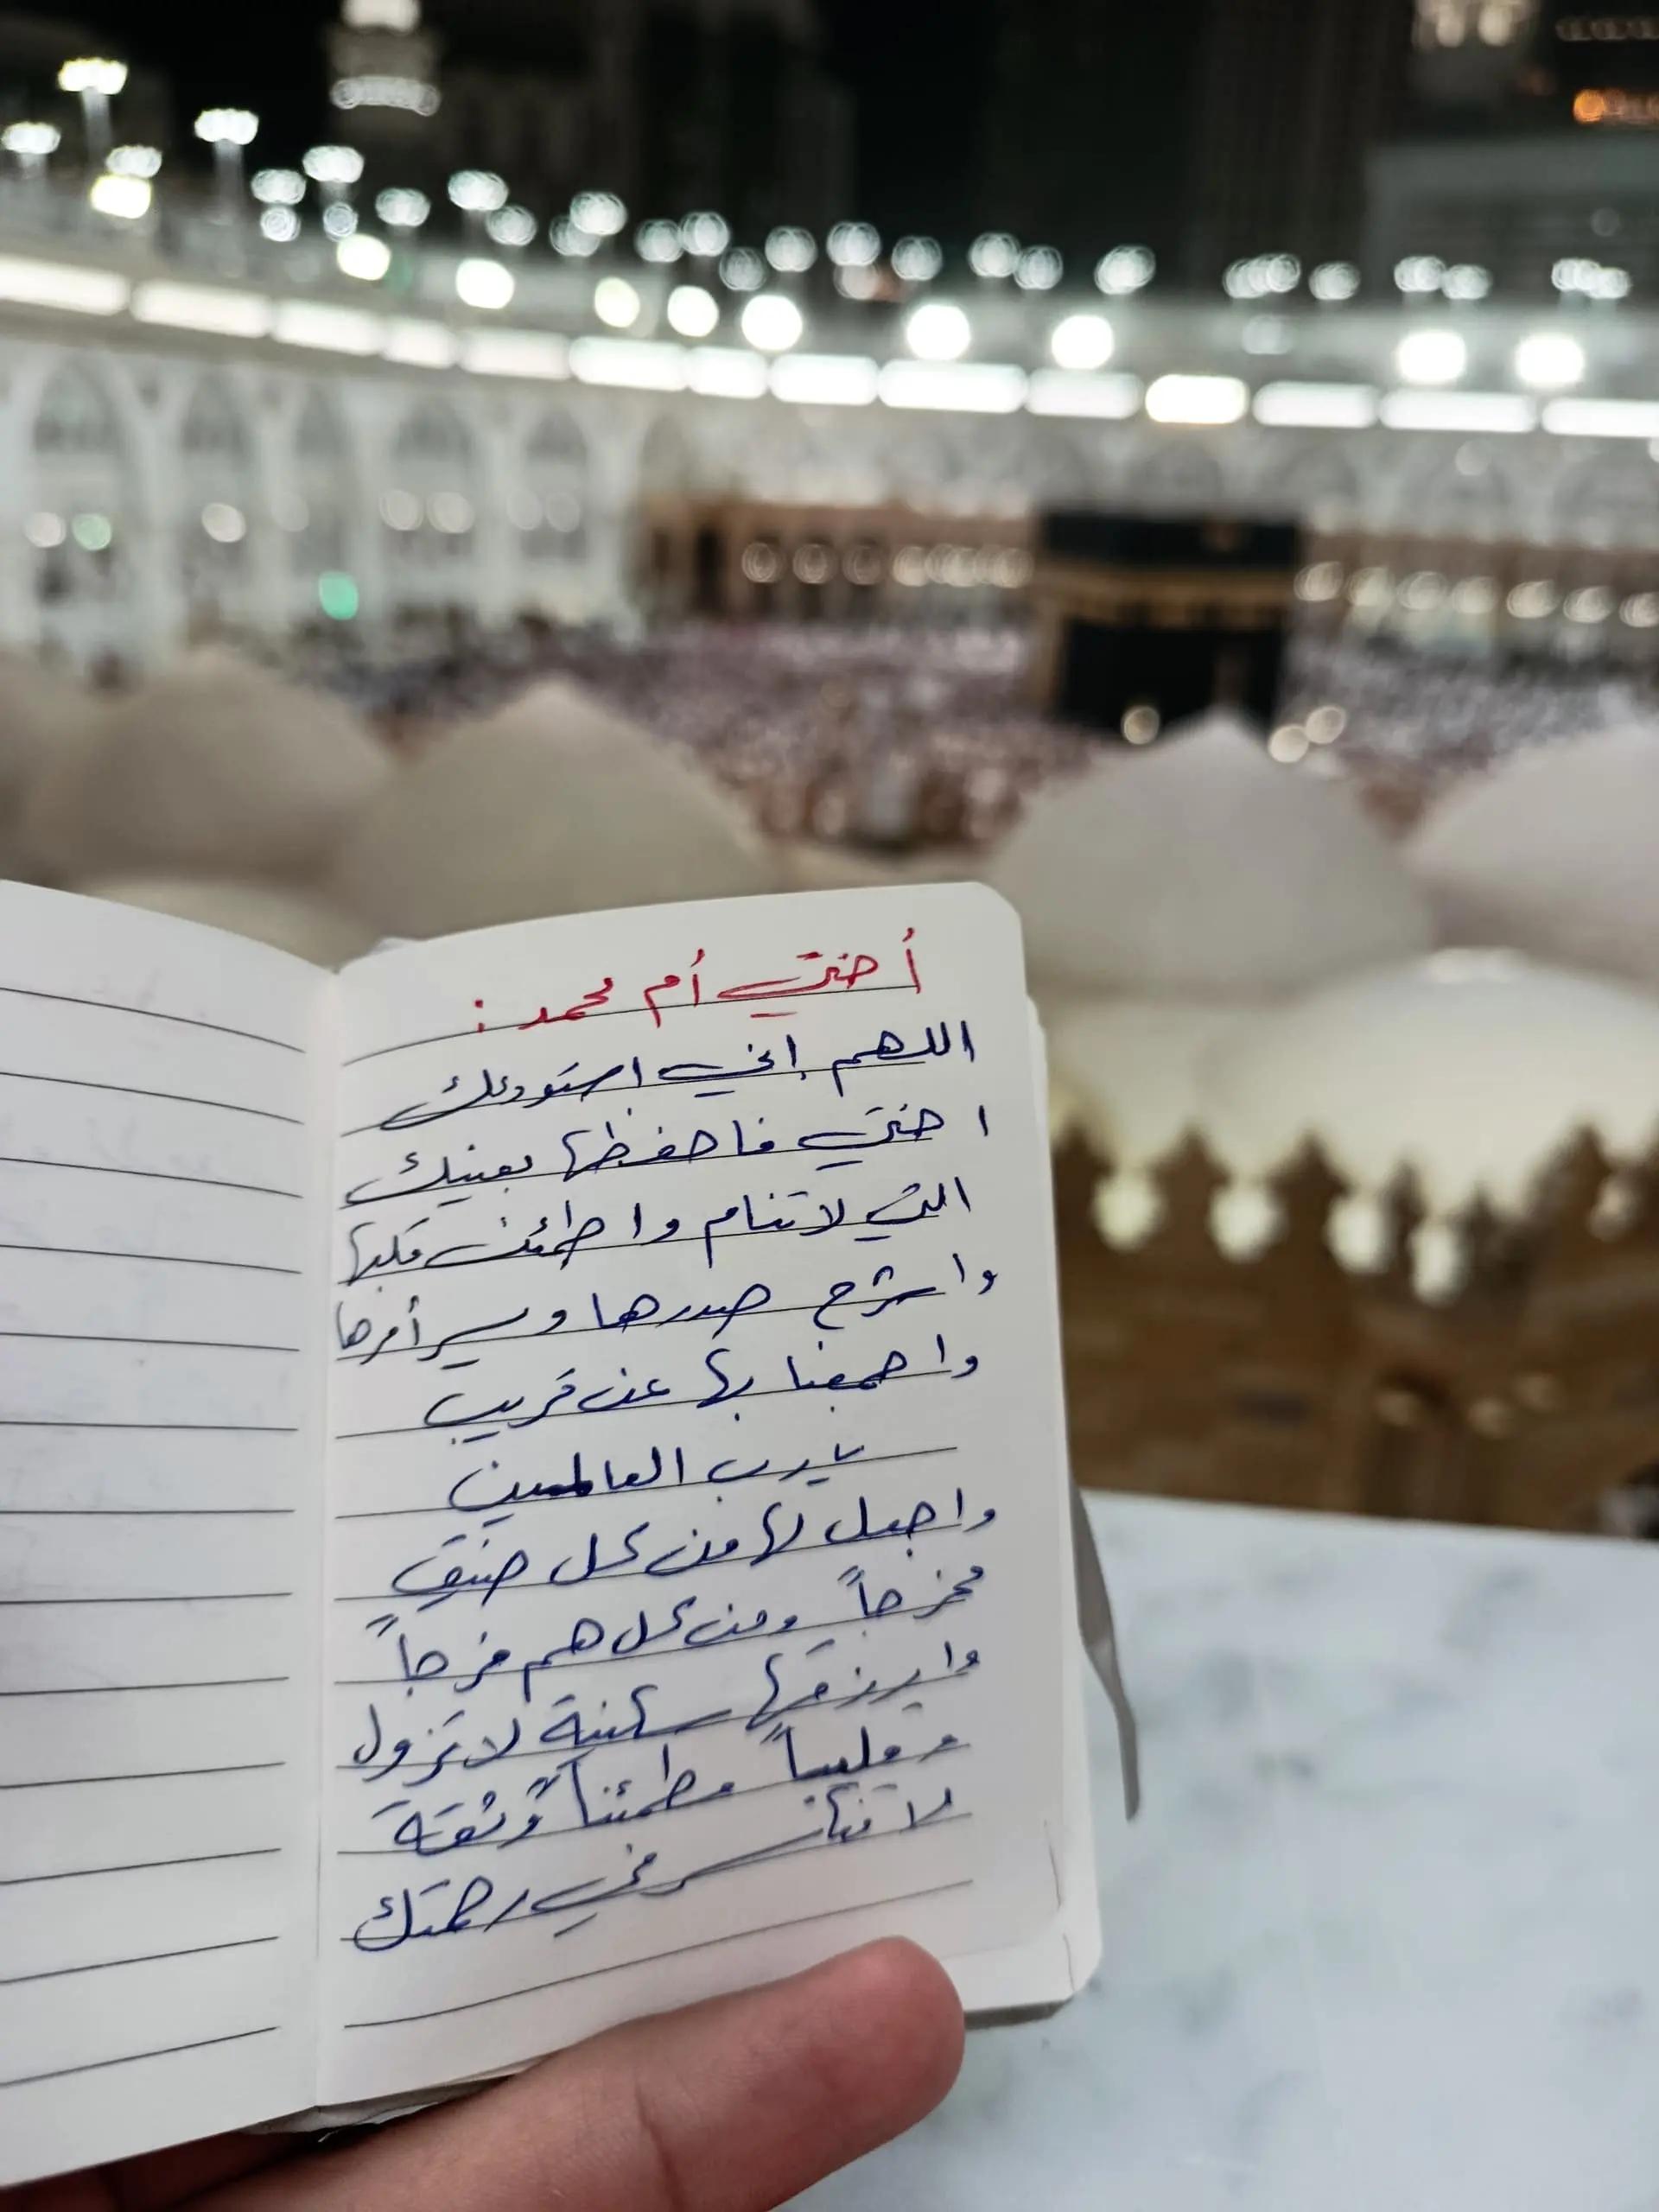 أختي أم محمد :
اللهم إني استودعك
اختي فاحفظها بعينك
التي لا تنام واطمئن قلبها
واشرح صدرها ويسر أمرها
واجمعنا بها عن قريب
يارب العالمين
واجعل لها من كل ضيقٍ
مخرجاً ومن كل هم فرجاً
وارزقها سكينة لا تزول
وقلباً مطمئناً وثقة
لا تنكسر في رحمتك